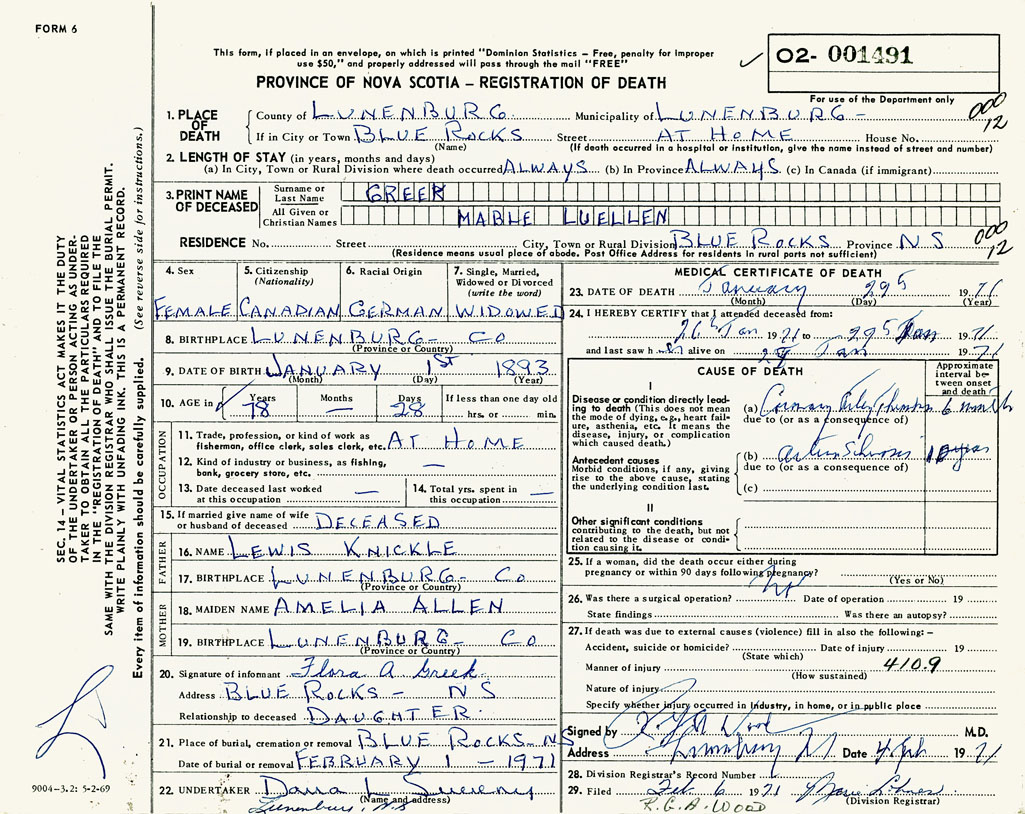 FORM 6
This form, if placed in an envelope, on which is printed "Dominion Statistics – Free, penalty for improper
use $50," and properly addressed will pass through the mail "FREE"
O2- 001491
PROVINCE OF NOVA SCOTIA – REGISTRATION OF DEATH
For use of the Department only
000
12
1. PLACE OF DEATH
County of LUNENBURG Municipality of LUNENBURG -
If in City or Town BLUE ROCKS Street AT HOME House No.
(Name) (If death occurred in a hospital or institution, give the name instead of street and number)
2. LENGTH OF STAY (in years, months and days)
(a) In City, Town or Rural Division where death occurred ALWAYS (b) In Province ALWAYS (c) In Canada (if immigrant)
3. PRINT NAME OF DECEASED
Surname or Last Name GREEK
All Given or Christian Names MABLE LUELLEN
RESIDENCE No. Street City, Town or Rural Division BLUE ROCKS Province NS
000
12
(Residence means usual place of abode. Post Office Address for residents in rural parts not sufficient)
4. Sex
FEMALE
5. Citizenship (Nationality)
CANADIAN
6. Racial Origin
GERMAN
7. Single, Married, Widowed or Divorced (write the word)
WIDOWED
8. BIRTHPLACE LUNENBURG - CO
(Province or Country)
9. DATE OF BIRTH JANUARY 1ST 1893
(Month) (Day) (Year)
10. AGE in Years 78 Months — Days 28 If less than one day old
hrs. or min.
OCCUPATION
11. Trade, profession, or kind of work as fisherman, office clerk, sales clerk, etc. AT HOME
12. Kind of industry or business, as fishing, bank, grocery store, etc. —
13. Date deceased last worked at this occupation —
14. Total yrs. spent in this occupation —
15. If married give name of wife or husband of deceased DECEASED
FATHER
16. NAME LEWIS KNICKLE
17. BIRTHPLACE LUNENBURG - CO
(Province or Country)
MOTHER
18. MAIDEN NAME AMELIA ALLEN
19. BIRTHPLACE LUNENBURG - CO
(Province or Country)
20. Signature of informant Flora A Greek
Address BLUE ROCKS - NS
Relationship to deceased DAUGHTER
21. Place of burial, cremation or removal BLUE ROCKS - NS
Date of burial or removal FEBRUARY 1 - 1971
22. UNDERTAKER Dana L Sweeny
(Name and address)
Lunenburg, NS
MEDICAL CERTIFICATE OF DEATH
23. DATE OF DEATH January 29 1971
(Month) (Day) (Year)
24. I HEREBY CERTIFY that I attended deceased from:
26 Jan 1971 to 29 Jan 1971
and last saw h er alive on 29 Jan 1971
CAUSE OF DEATH
Approximate interval between onset and death
I
Disease or condition directly leading to death (This does not mean the mode of dying, e.g., heart failure, asthenia, etc. It means the disease, injury, or complication which caused death.)
(a) Coronary 6
due to (or as a consequence of)
Antecedent causes
Morbid conditions, if any, giving rise to the above cause, stating the underlying condition last.
(b) 10 years
due to (or as a consequence of)
(c)
II
Other significant conditions
contributing to the death, but not related to the disease or condition causing it.
25. If a woman, did the death occur either during pregnancy or within 90 days following pregnancy?
(Yes or No)
26. Was there a surgical operation? Date of operation 19
State findings Was there an autopsy?
27. If death was due to external causes (violence) fill in also the following: –
Accident, suicide or homicide? Date of injury 19
(State which)
Manner of injury 410.9
(How sustained)
Nature of injury
Specify whether injury occurred in Industry, in home, or in public place
Signed by Wood M.D.
Address Date 4 Feb 1971
28. Division Registrar's Record Number
29. Filed Feb 6 1971
(Division Registrar)
R.G.A. WOOD
SEC. 14 – VITAL STATISTICS ACT MAKES IT THE DUTY
OF THE UNDERTAKER OR PERSON ACTING AS UNDER-
TAKER TO OBTAIN ALL THE PARTICULARS REQUIRED
IN THE "REGISTRATION OF DEATH" AND TO FILE THE
SAME WITH THE DIVISION REGISTRAR WHO SHALL ISSUE THE BURIAL PERMIT.
WRITE PLAINLY WITH UNFADING INK. THIS IS A PERMANENT RECORD.
Every item of information should be carefully supplied. (See reverse side for instructions.)
9004-3.2: 5-2-69